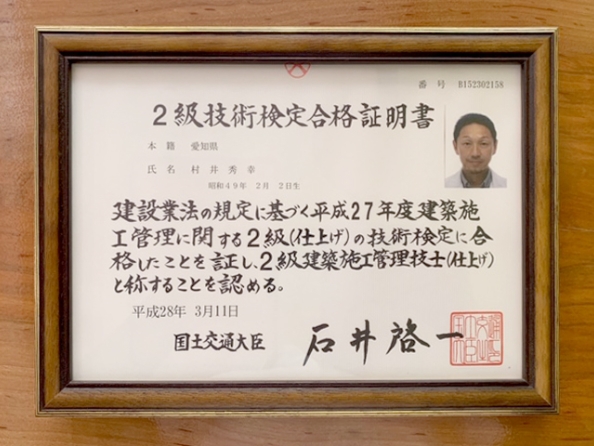 番号 B152302158
2級技術検定合格証明書
本籍 愛知県
氏名 村井秀幸
昭和49年 2月 2日生
建設業法の規定に基づく平成27年度建築施
工管理に関する2級(仕上げ)の技術検定に合
格したことを証し、2級建築施工管理技士(仕上げ)
と称することを認める。
平成28年 3月11日
国土交通大臣 石井啓一